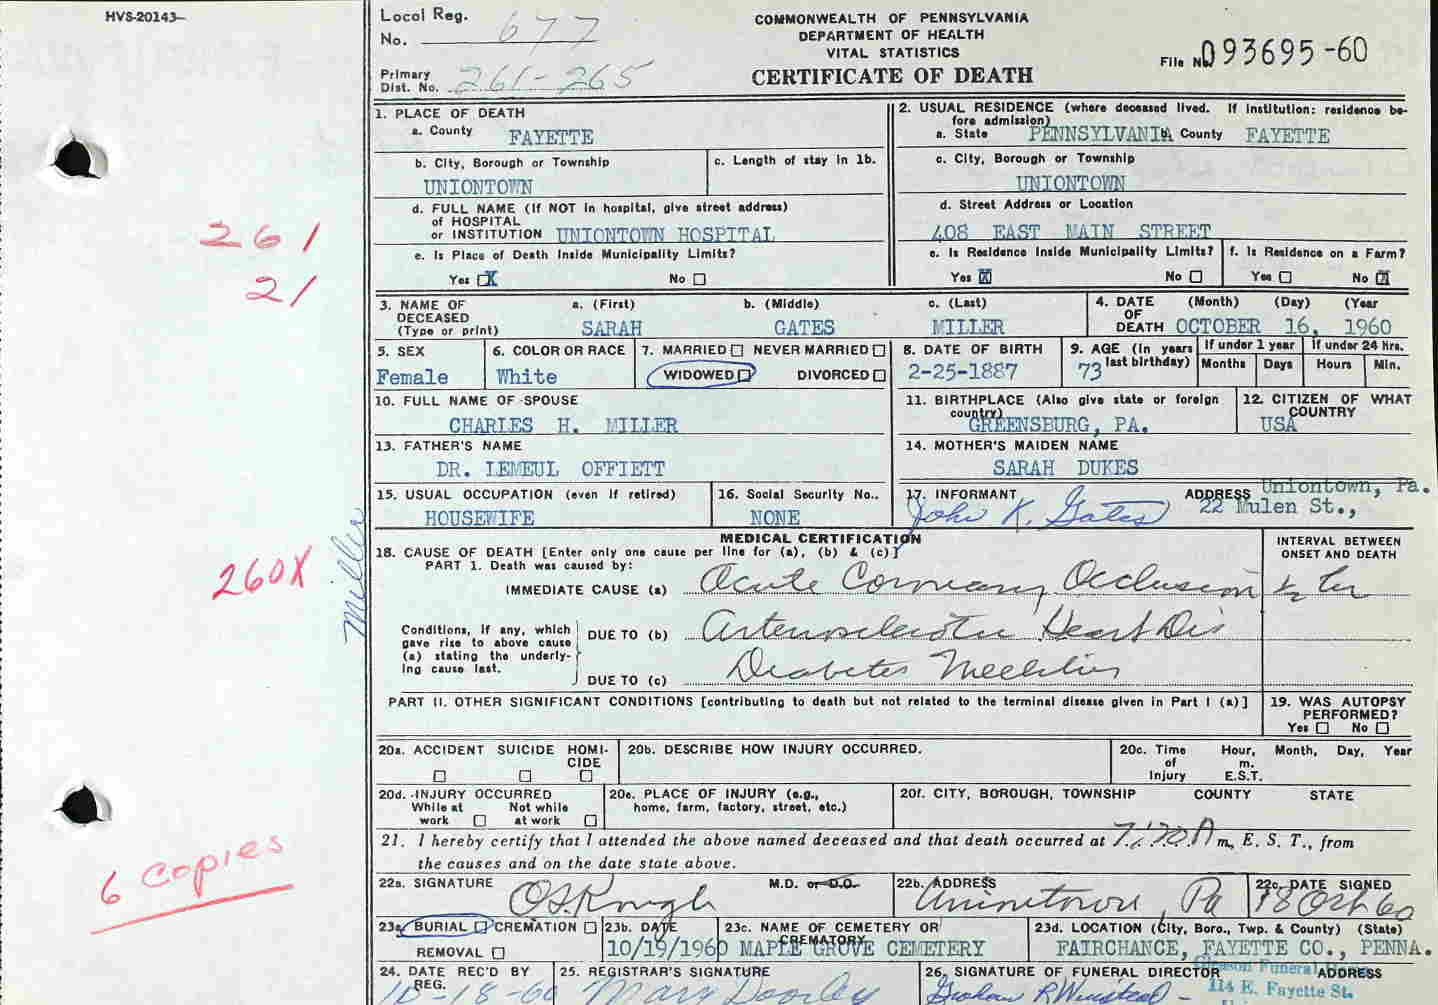 HVS-20143-
Local Reg. No. 677
COMMONWEALTH OF PENNSYLVANIA
DEPARTMENT OF HEALTH
VITAL STATISTICS
CERTIFICATE OF DEATH
File No. 093695-60
Primary Dist. No. 261-265
1. PLACE OF DEATH
a. County FAYETTE
b. City, Borough or Township UNIONTOWN
c. Length of stay in 1b.
d. FULL NAME (If NOT in hospital, give street address)
of HOSPITAL
or INSTITUTION UNIONTOWN HOSPITAL
e. Is Place of Death Inside Municipality Limits?
Yes X No
2. USUAL RESIDENCE (where deceased lived. If institution: residence be-
fore admission)
a. State PENNSYLVANIA b. County FAYETTE
c. City, Borough or Township
UNIONTOWN
d. Street Address or Location
408 EAST MAIN STREET
e. Is Residence Inside Municipality Limits? f. Is Residence on a Farm?
Yes X No Yes No X
261
21
3. NAME OF DECEASED (Type or print)
a. (First) b. (Middle) c. (Last)
SARAH GATES MILLER
4. DATE OF DEATH (Month) (Day) (Year
OCTOBER 16, 1960
5. SEX Female
6. COLOR OR RACE White
7. MARRIED NEVER MARRIED
WIDOWED DIVORCED
8. DATE OF BIRTH 2-25-1887
9. AGE (In years last birthday) 73
If under 1 year If under 24 Hrs.
Months Days Hours Min.
10. FULL NAME OF SPOUSE
CHARLES H. MILLER
11. BIRTHPLACE (Also give state or foreign country)
GREENSBURG, PA.
12. CITIZEN OF WHAT COUNTRY
USA
13. FATHER'S NAME
DR. LEMEUL OFFIETT
14. MOTHER'S MAIDEN NAME
SARAH DUKES
15. USUAL OCCUPATION (even if retired)
HOUSEWIFE
16. Social Security No..
NONE
17. INFORMANT John K. Gates
ADDRESS Uniontown, Pa.
22 Mulen St.,
MEDICAL CERTIFICATION
18. CAUSE OF DEATH [Enter only one cause per line for (a), (b) & (c)]
PART 1. Death was caused by:
INTERVAL BETWEEN ONSET AND DEATH
IMMEDIATE CAUSE (a) Acute Coronary Occlusion ½ hr
Conditions, if any, which
gave rise to above cause
(a) stating the underly-
ing cause last.
DUE TO (b) Arteriosclerotic Heart Dis
DUE TO (c) Diabetes Mellitus
260X
Miller
PART II. OTHER SIGNIFICANT CONDITIONS [contributing to death but not related to the terminal disease given in Part I (a)]
19. WAS AUTOPSY PERFORMED?
Yes No
20a. ACCIDENT SUICIDE HOMI-
CIDE
20b. DESCRIBE HOW INJURY OCCURRED.
20c. Time of Injury Hour, Month, Day, Year
m.
E.S.T.
20d. INJURY OCCURRED
While at work Not while at work
20e. PLACE OF INJURY (e.g.,
home, farm, factory, street, etc.)
20f. CITY, BOROUGH, TOWNSHIP COUNTY STATE
21. I hereby certify that I attended the above named deceased and that death occurred at 7:20 A m., E. S. T., from
the causes and on the date state above.
6 copies
22a. SIGNATURE M.D. or D.O.
22b. ADDRESS Uniontown, Pa
22c. DATE SIGNED 18 Oct 60
23a. BURIAL CREMATION
REMOVAL
23b. DATE 10/19/1960
23c. NAME OF CEMETERY OR CREMATORY
MAPLE GROVE CEMETERY
23d. LOCATION (City, Boro., Twp. & County) (State)
FAIRCHANCE, FAYETTE CO., PENNA.
24. DATE REC'D BY REG. 10-18-60
25. REGISTRAR'S SIGNATURE
Mary Doorley
26. SIGNATURE OF FUNERAL DIRECTOR ADDRESS
114 E. Fayette St.